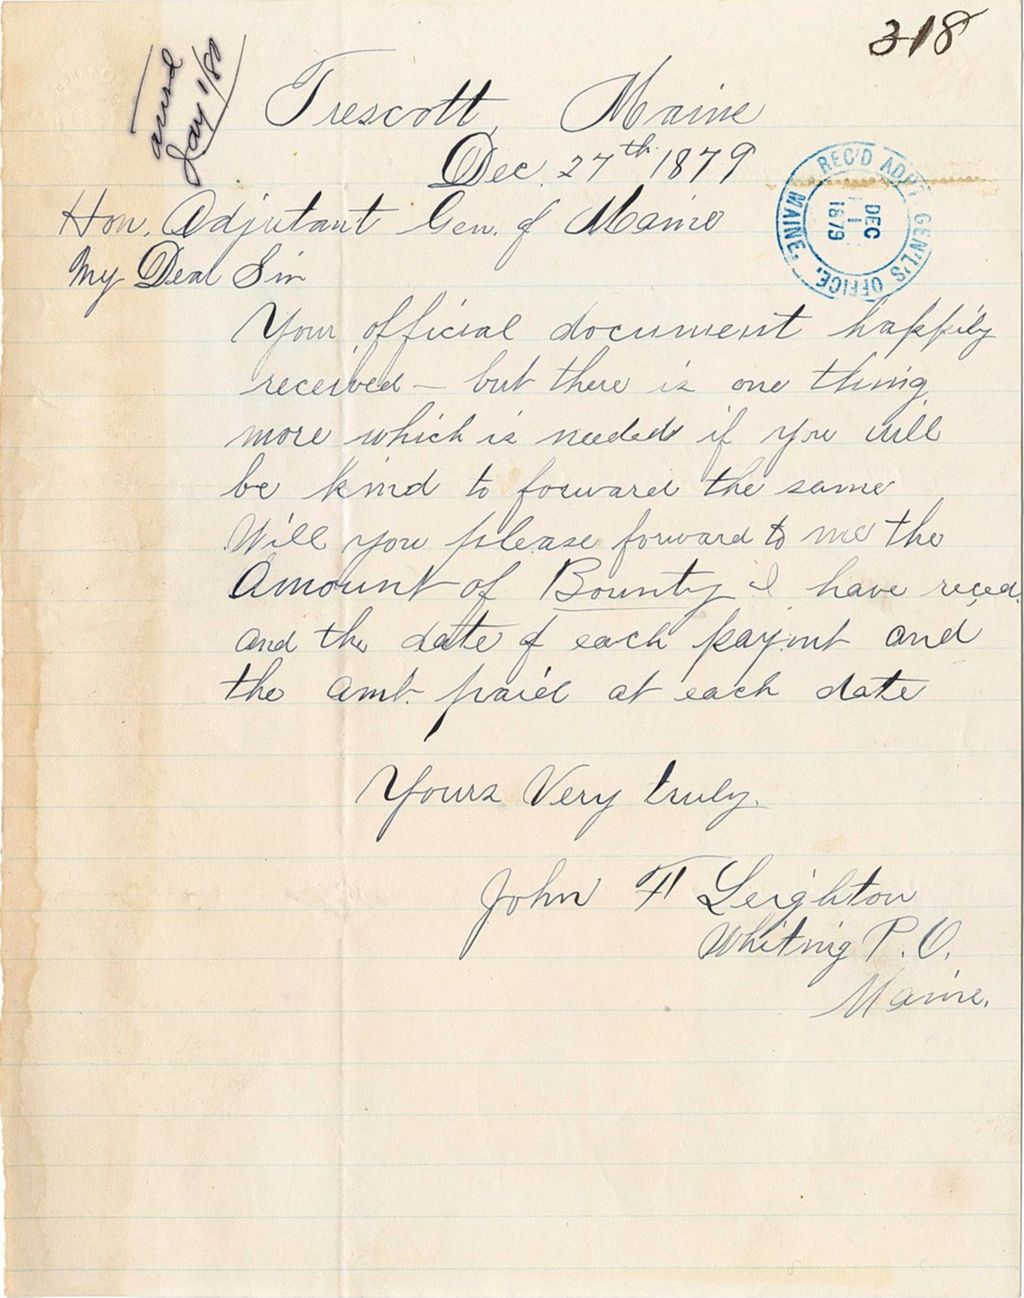 318
ansd
Jany 1/80
Trescott, Maine
Dec. 27th 1879
REC'D ADJ'T GEN'L'S OFFICE, MAINE,
DEC
1879
Hon. Adjutant Gen. of Maine
My Dear Sir
Your official document happily
received - but there is one thing
more which is needed if you will
be kind to forward the same
Will you please forward to me the
Amount of Bounty I have reced.
and the date of each paymt and
the amt. paid at each date
Yours Very truly.
John F Leighton
Whiting P.O.
Maine.